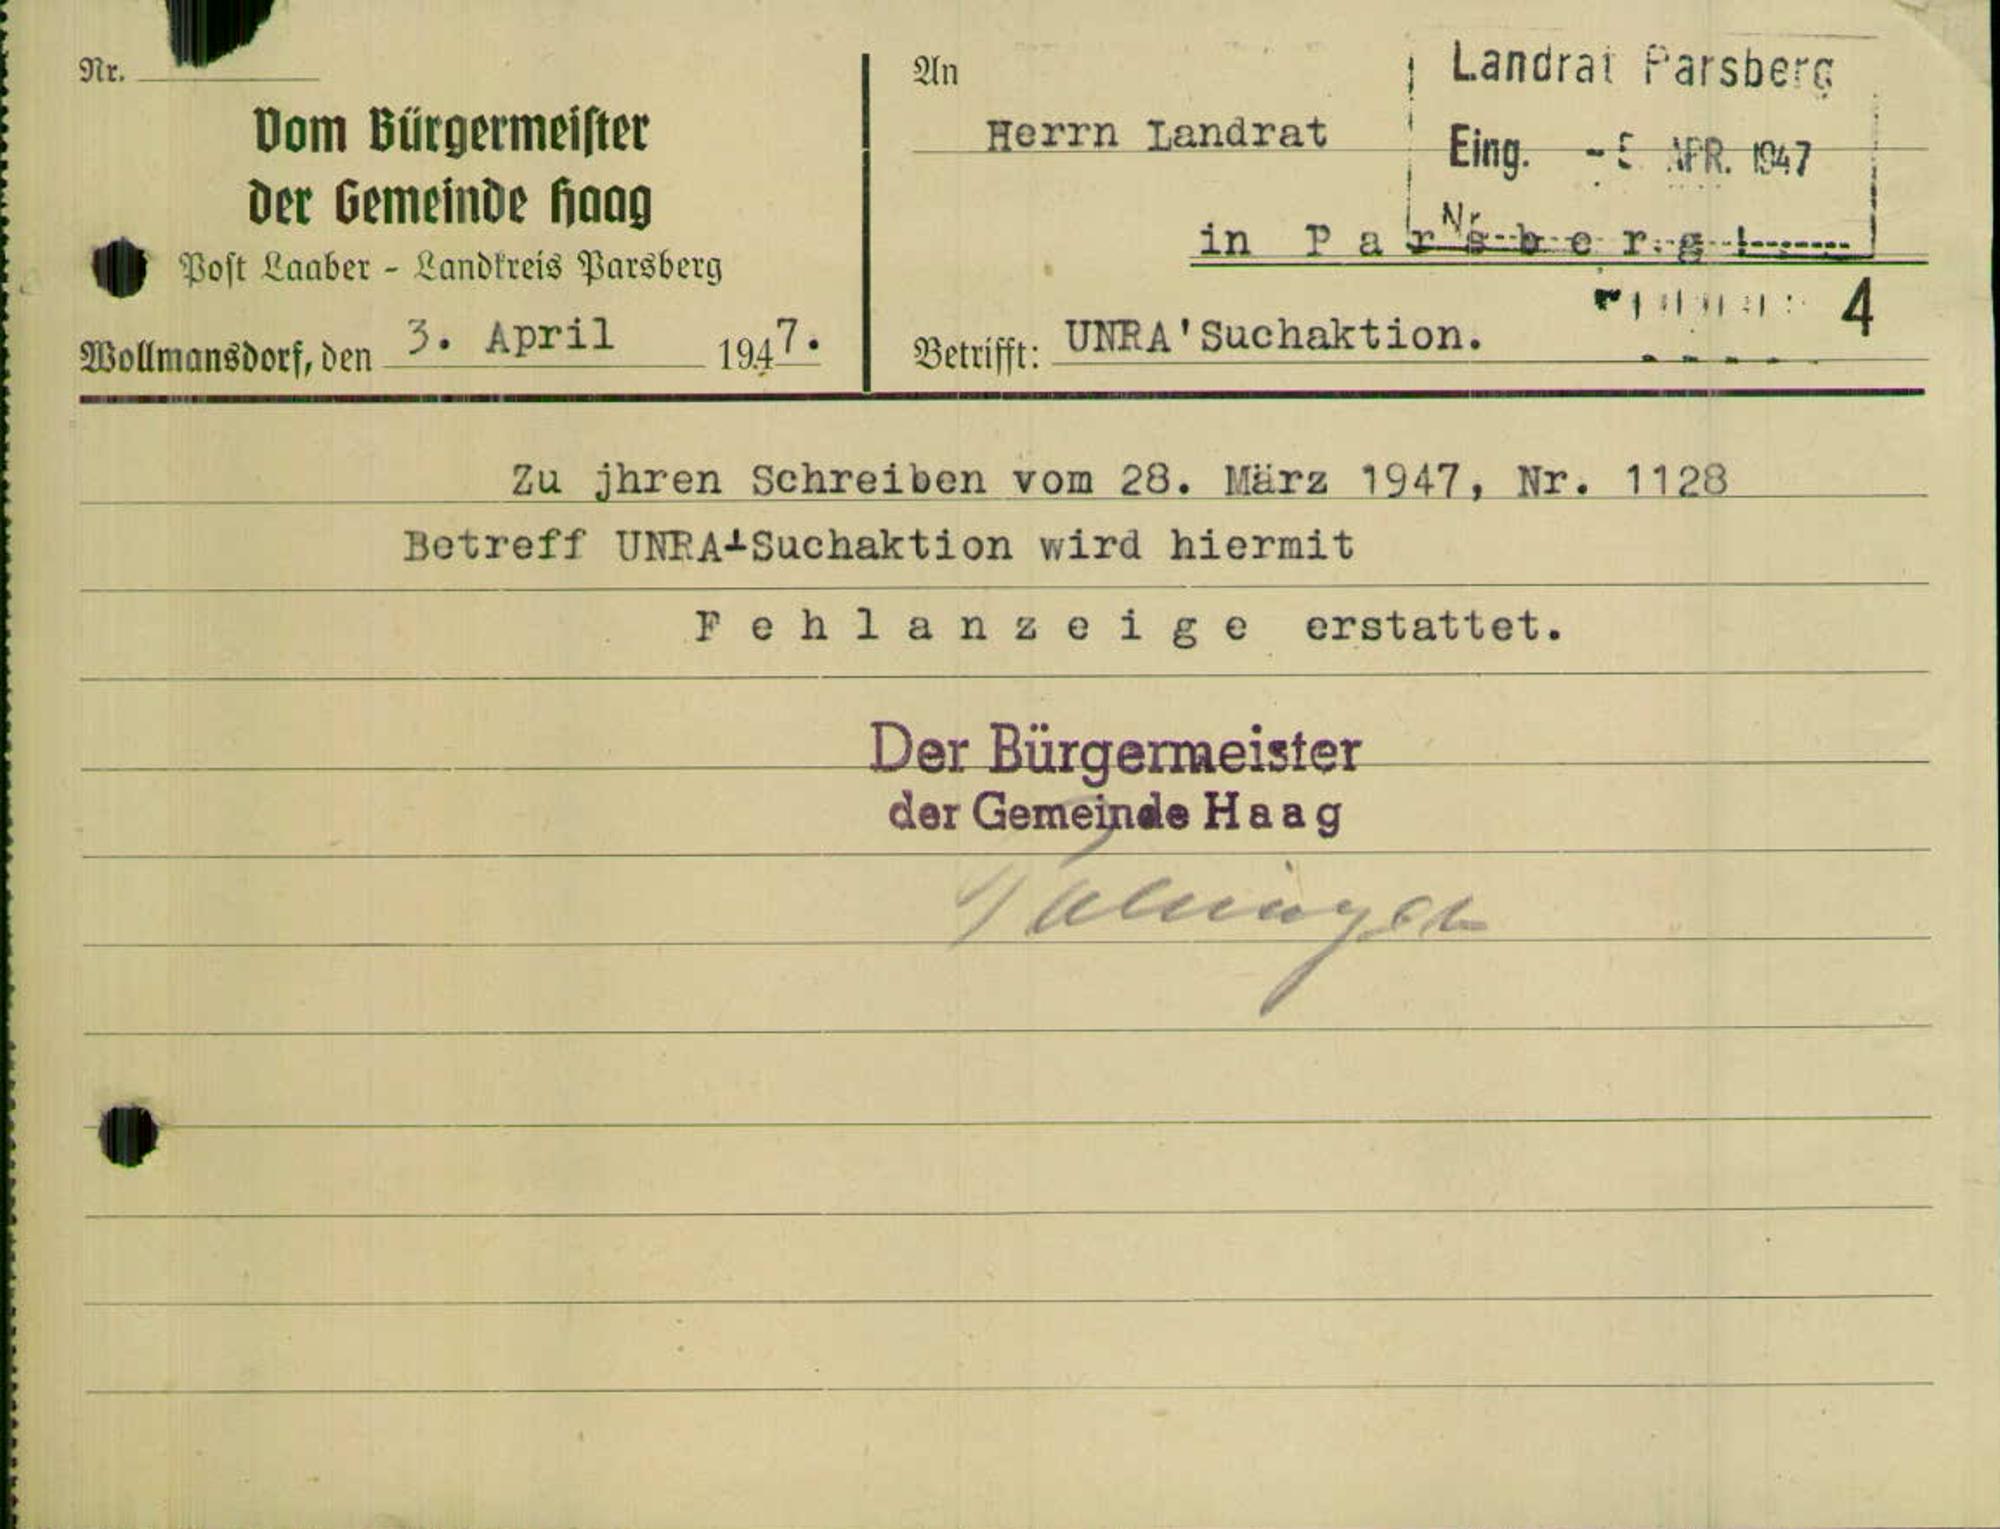 Nr.
Vom Bürgermeister
der Gemeinde Haag
Post Laaber - Landkreis Parsberg
Wollmansdorf, den 3. April 1947.
An
Herrn Landrat
in Parsberg!
Betrifft: UNRA'Suchaktion.
Landrat Parsberg
Eing. - 5. APR. 1947
Nr.
4
Zu jhren Schreiben vom 28. März 1947, Nr. 1128
Betreff UNRA-Suchaktion wird hiermit
Fehlanzeige erstattet.
Der Bürgermeister
der Gemeinde Haag